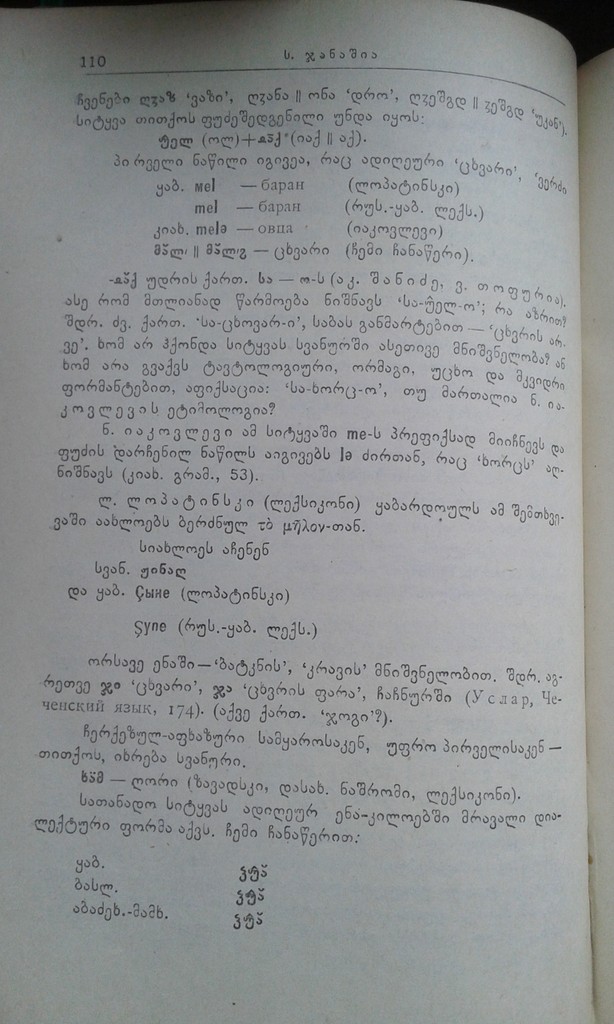 110 ს. ჯანაშია
ჩვენები ღჳაზ ‘ვაზი’, ღჳანა || ონა ‘დრო’, ღჳეშგდ || ჳეშგდ ‘უკან’).
სიტყვა თითქოს ფუძეშედგენილი უნდა იყოს:
(ოლ) + (იაქ || აქ).
პირველი ნაწილი იგივეა, რაც ადიღეური ‘ცხვარი’, ‘ვერძი
ყაბ. меl — баран (ლოპატინსკი)
mel — баран (რუს.-ყაბ. ლექს.)
კიახ. melə — овца (იაკოვლევი)
— ცხვარი (ჩემი ჩანაწერი).
უდრის ქართ. სა — ო-ს (აკ. შანიძე, ვ. თოფურია).
ასე რომ მთლიანად წარმოება ნიშნავს ; რა აზრით?
შდრ. ძვ. ქართ. ‘სა-ცხოვარ-ი’, საბას განმარტებით — ‘ცხვრის არ-
ვე’. ხომ არ ჰქონდა სიტყვას სვანურში ასეთივე მნიშვნელობა? ან
ხომ არა გვაქვს ტავტოლოგიური, ორმაგი, უცხო და მკვიდრი
ფორმანტებით, აფიქსაცია: ‘სა-ხორც-ო’, თუ მართალია ნ. ია-
კოვლევის ეტიმოლოგია?
ნ. იაკოვლევი ამ სიტყვაში me-ს პრეფიქსად მიიჩნევს და
ფუძის დარჩენილ ნაწილს აიგივებს lə ძირთან, რაც ‘ხორცს’ აღ-
ნიშნავს (კიახ. გრამ., 53).
ლ. ლოპატინსკი (ლექსიკონი) ყაბარდოულს ამ შემთხვე-
ვაში აახლოებს ბერძნულ τὸ μῆλον-თან.
სიახლოეს აჩენენ
სვან. ჟინაღ
და ყაბ. Çыне (ლოპატინსკი)
Şyne (რუს.-ყაბ. ლექს.)
ორსავე ენაში — ‘ბატკნის’, ‘კრავის’ მნიშვნელობით. შდრ. აგ-
რეთვე ‘ცხვარი’, ‘ცხვრის ფარა’, ჩაჩნურში (Услар, Че-
ченский язык, 174). (აქვე ქართ. ‘ჯოგი’?).
ჩერქეზულ-აფხაზური სამყაროსაკენ, უფრო პირველისაკენ —
თითქოს, იხრება სვანური.
ხა̈მ — ღორი (ზავადსკი, დასახ. ნაშრომი, ლექსიკონი).
სათანადო სიტყვას ადიღეურ ენა-კილოებში მრავალი დია-
ლექტური ფორმა აქვს. ჩემი ჩანაწერით:
ყაბ.
ბასლ.
აბაძეხ.-მამხ.